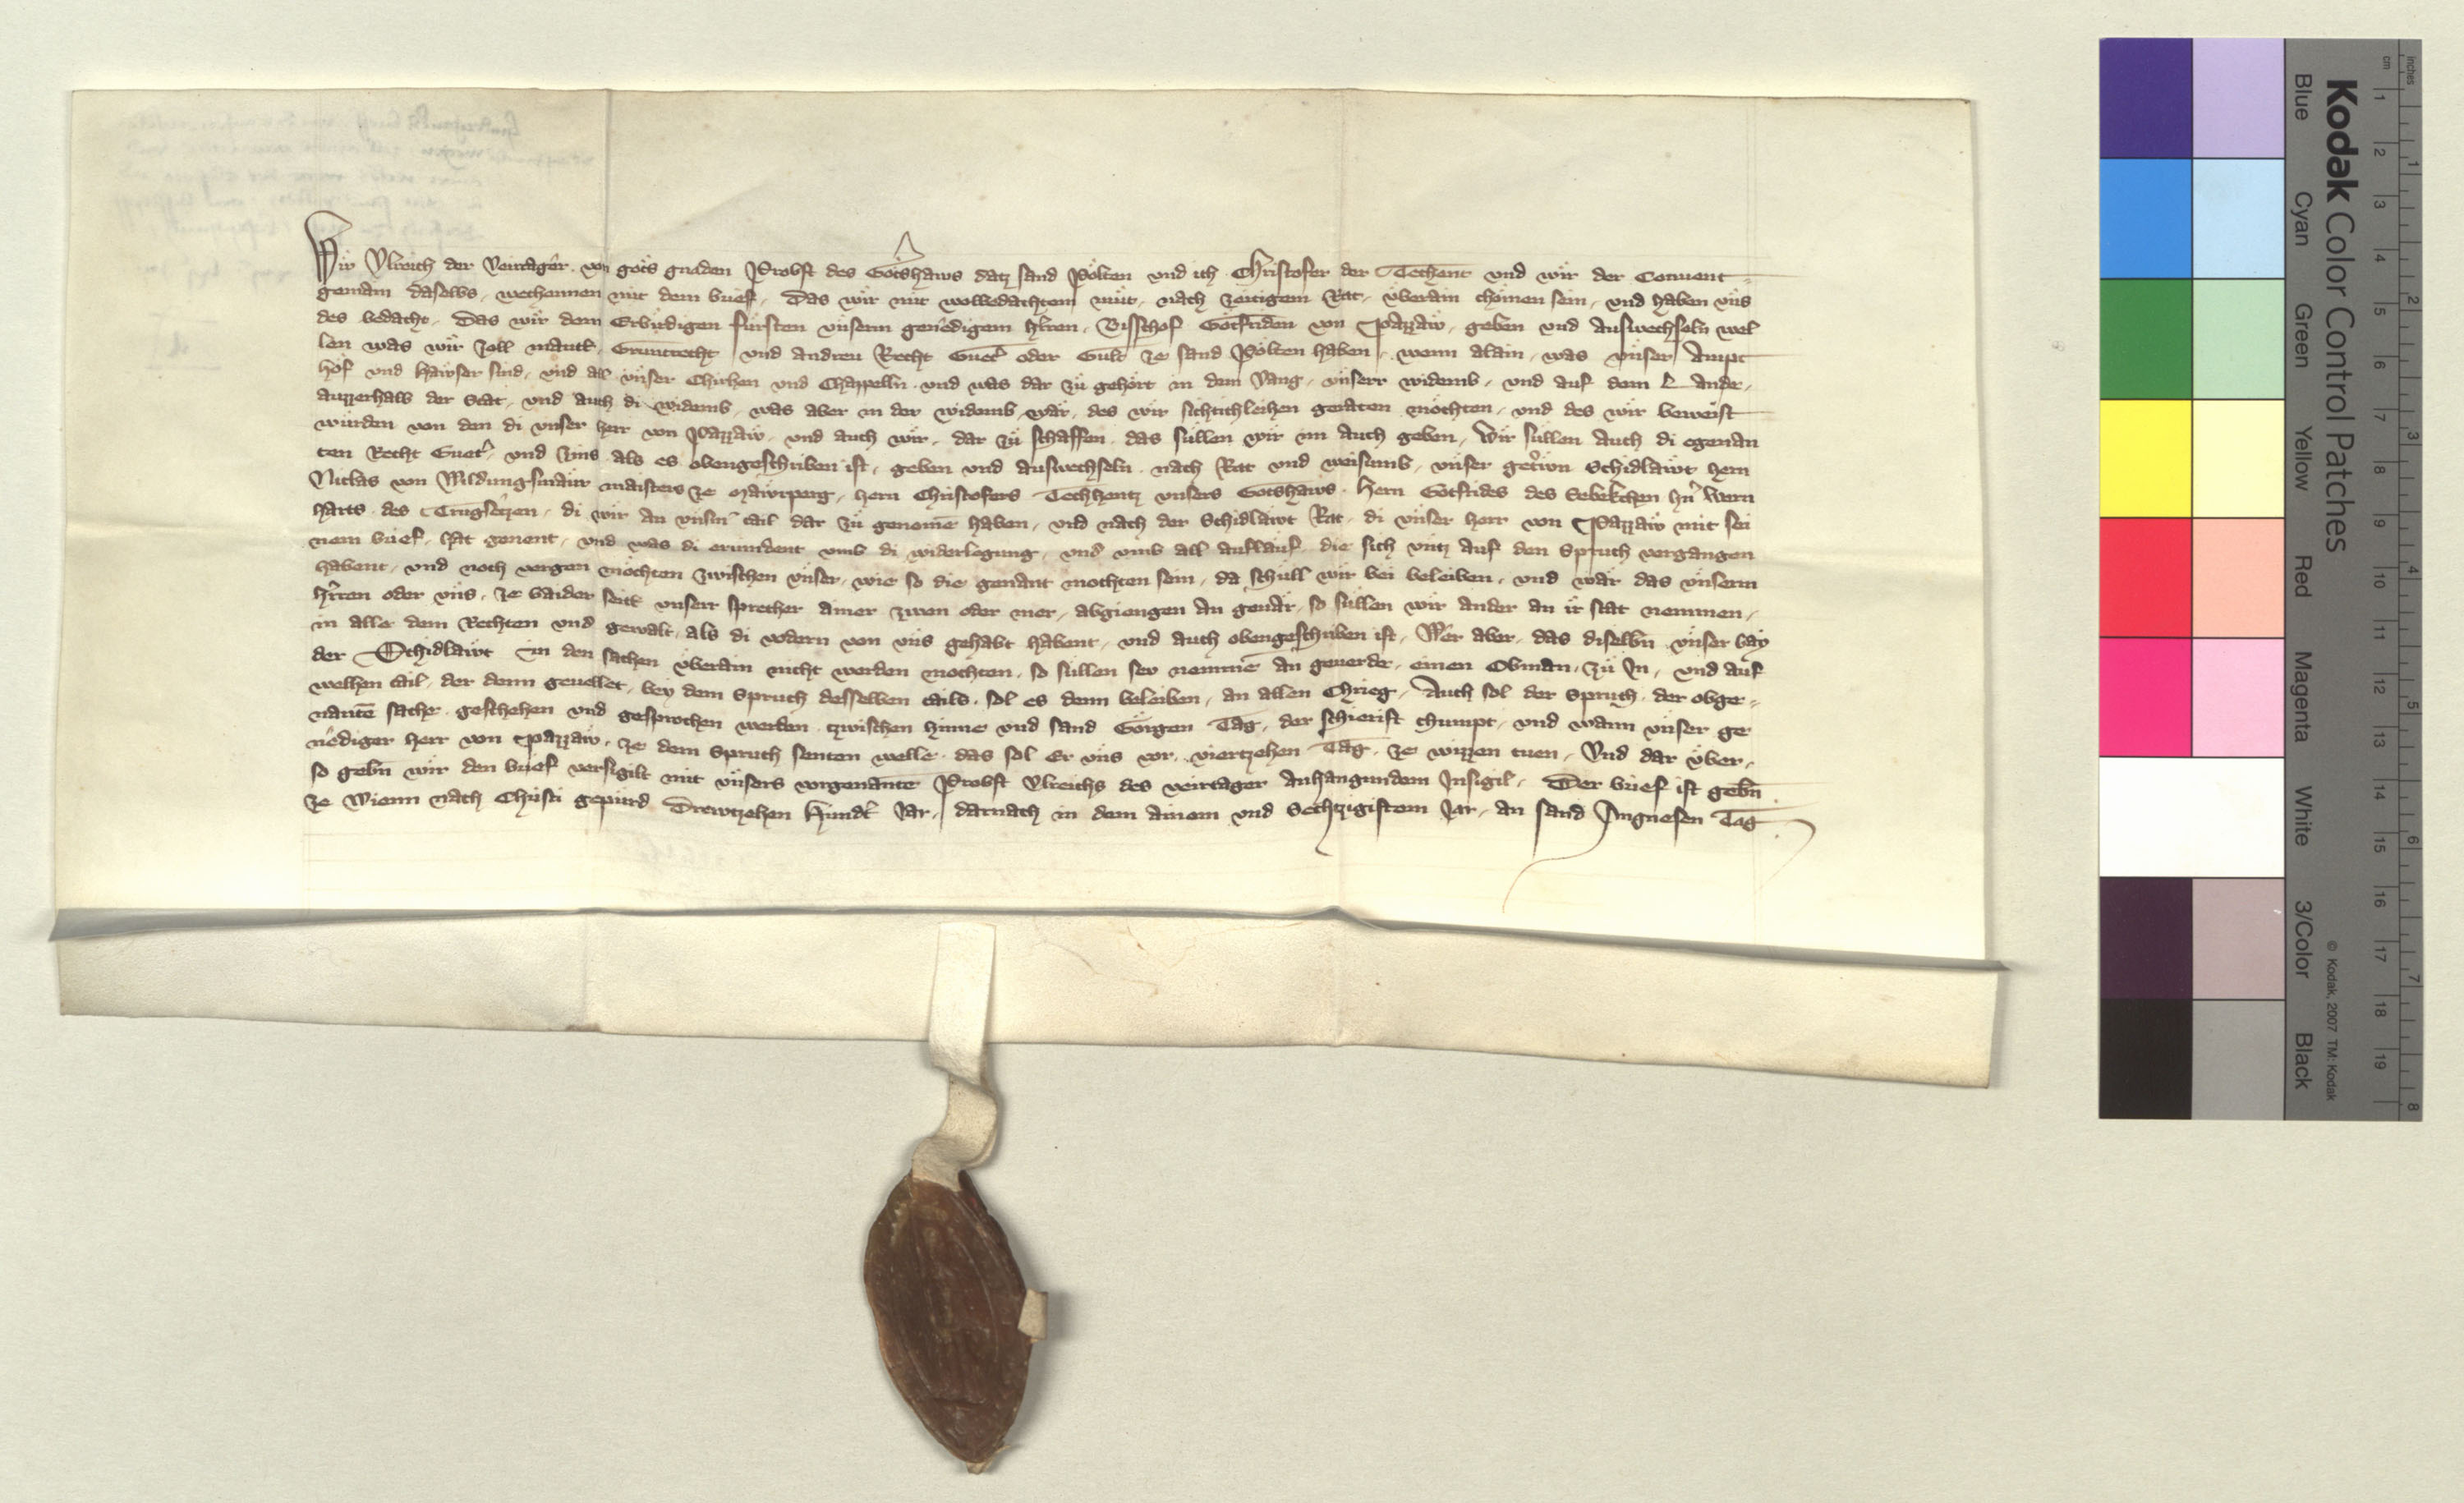 Wir Vlreich der Veirtager von gots gnaden Probst des Gotshaws datz sand Pölten vnd ich Christofer der Techent vnd wir der Conuent
gemain daselbs, vechennen mit dem brief, Das wir mit wolbedachtem mut, nach zeitigem Rat, vberain chömen sein, vnd haben vns
des bedacht, Das wir dem Erbirdigen fürsten vnserm genedigem hern, Bisschof Gotfriden von Pazzaw, geben vnd auswechseln wel
len was wir zoll mautt, Gruntrecht vnd andreu Recht Guet oder Gult ze sand Pölten haben, wenn alain, was vnser Ampt
höf vnd Hawser sind, vnd all vnser Chirhen vnd Chappelln vnd was dar zů gehört in dem Vang, vnserr widemb, vnd auf dem Lande,
auzzerhalb der Stat, vnd auch di widemb, was aber in der widemb wär, des wir sichtichleihen geraten möchten, vnd des wir beweist
würden von den di vnser herr von Pazzaw, vnd auch wir, dar zů schaffen, das süllen wir im auch geben, Wir süllen auch di egenan
ten Recht Guet, vnd zins als es obengeschriben ist, geben vnd auswechseln nach Rat vnd weisumb, vnser getrwn Schidlawt hern
Niclas von Wildungsmaur maisters ze Mawrperg, hern Christofers Techhentz vnsers Gotshaws, hern Gotfrides des Sebekchen hern Wern
harts des Trugsetzen, di wir an vnserm tail dar zů genome haben, vnd nach der Schidlawt Rat, di vnser herr von Pazzaw mit sei
nem brief, hat genent, vnd was di erfindent vmb di widerlegung, vnd vmb all auflauf, die sich vntz auf den Spruch vergangen
habent, vnd noch vergen möchten zwischen vnser, wie so die genant mochten sein, da schüll wir bei beleiben, vnd wär das vnserm
hern oder vns, ze baider seitt vnserr sprecher ainer zwen oder mer, abgiengen an geuär, so süllen wir ander an ir stat nemmen,
in alle dem Rechten vnd gewalt, als di vodern von vns gehabt habent, vnd auch obengeschriben ist, Wer aber, das diselbn vnser bay
der Schidlawt in den sachen vberain nicht werden mochten, so süllen sev nemme an geuerde, einen Obman, zů In, vnd auf
welhen tail, der denn geuellet, bey dem Spruch desselben tails, sol es denn beleiben, an allen Chrieg, Auch sol der Spruch, der obge
nante sache, geschehen vnd gesprochen werden, tzwischen hinne vnd sand Görgen Tag, der schierist chumpt, vnd wann vnser ge
nediger herr von Pazzaw, ze dem Spruch senten welle, das sol er vns vor, viertzehen Tag, ze wizzen tuen, Vnd dar vber,
so gebn wir den brief versigilt mit vnsers vorgenante Probst Vlreichs des veirtager anhangundem Insigil, Der brief ist gebn
ze Wienn nach Christi gepurd Drewtzehen Hundt Jar, darnach in dem ainem vnd Sechtzigistem Jar, an sand Angnesen Tag
Kodak Color Control Patches
Blue Cyan Green Yellow Red Magenta White 3/Color Black
© Kodak, 2007 TM: Kodak
cm 1 2 3 4 5 6 7 8 9 10 11 12 13 14 15 16 17 18 19
inches 1 2 3 4 5 6 7 8